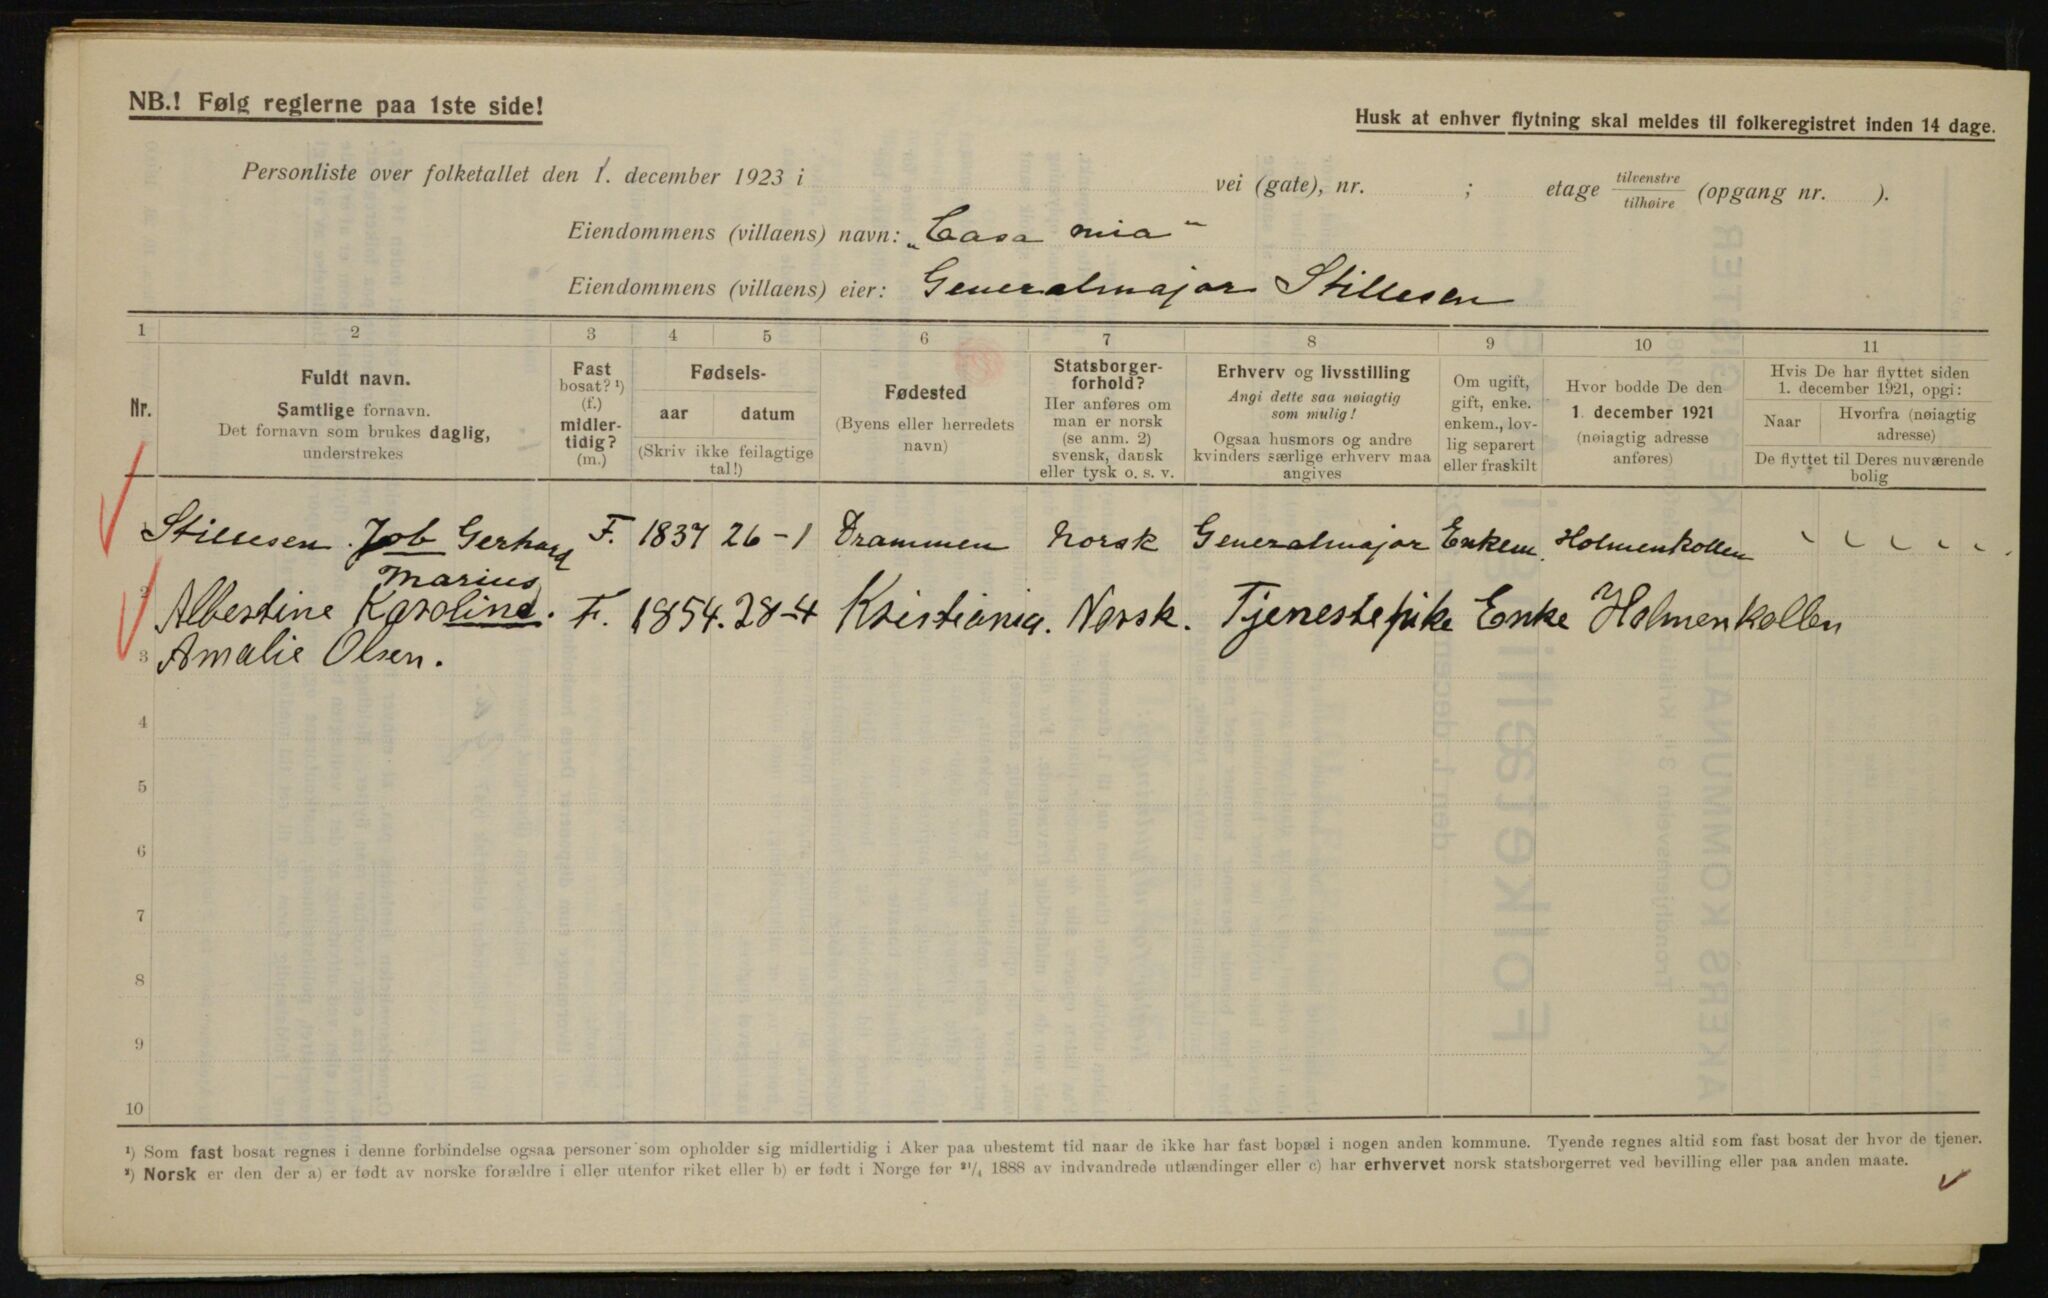 NB.! Følg reglerne paa 1ste side!
Husk at enhver flytning skal meldes til folkeregistret inden 14 dage.
Personliste over folketallet den 1. december 1923 i vei (gate), nr. ; etage tilvenstre / tilhøire (opgang nr. ).
Eiendommens (villaens) navn: „Casa mia"
Eiendommens (villaens) eier: Generalmajor Stillesen
1 2 3 4 5 6 7 8 9 10 11
Nr.
Fuldt navn.
Samtlige fornavn.
Det fornavn som brukes daglig,
understrekes
Fast
bosat? ¹)
(f.)
midler-
tidig?
(m.)
Fødsels-
aar datum
(Skriv ikke feilagtige
tal!)
Fødested
(Byens eller herredets
navn)
Statsborger-
forhold?
Her anføres om
man er norsk
(se anm. 2)
svensk, dansk
eller tysk o. s. v.
Erhverv og livsstilling
Angi dette saa nøiagtig
som mulig!
Ogsaa husmors og andre
kvinders særlige erhverv maa
angives
Om ugift,
gift, enke.
enkem., lov-
lig separert
eller fraskilt
Hvor bodde De den
1. december 1921
(nøiagtig adresse
anføres)
Hvis De har flyttet siden
1. december 1921, opgi:
Naar Hvorfra (nøiagtig
adresse)
De flyttet til Deres nuværende
bolig
Stillesen. Job Gerhard F. 1837 26-1 Drammen Norsk Generalmajor Enkem. Holmenkollen
Marius
2 Albertine Karoline. F. 1854. 28-4 Kristiania. Norsk. Tjenestepike Enke Holmenkollen
3 Amalie Olsen.
4
5
6
7
8
9
10
¹) Som fast bosat regnes i denne forbindelse ogsaa personer som opholder sig midlertidig i Aker paa ubestemt tid naar de ikke har fast bopæl i nogen anden kommune. Tyende regnes altid som fast bosat der hvor de tjener.
²) Norsk er den der a) er født av norske forældre i eller utenfor riket eller b) er født i Norge før ²¹/₄ 1888 av indvandrede utlændinger eller c) har erhvervet norsk statsborgerret ved bevilling eller paa anden maate.